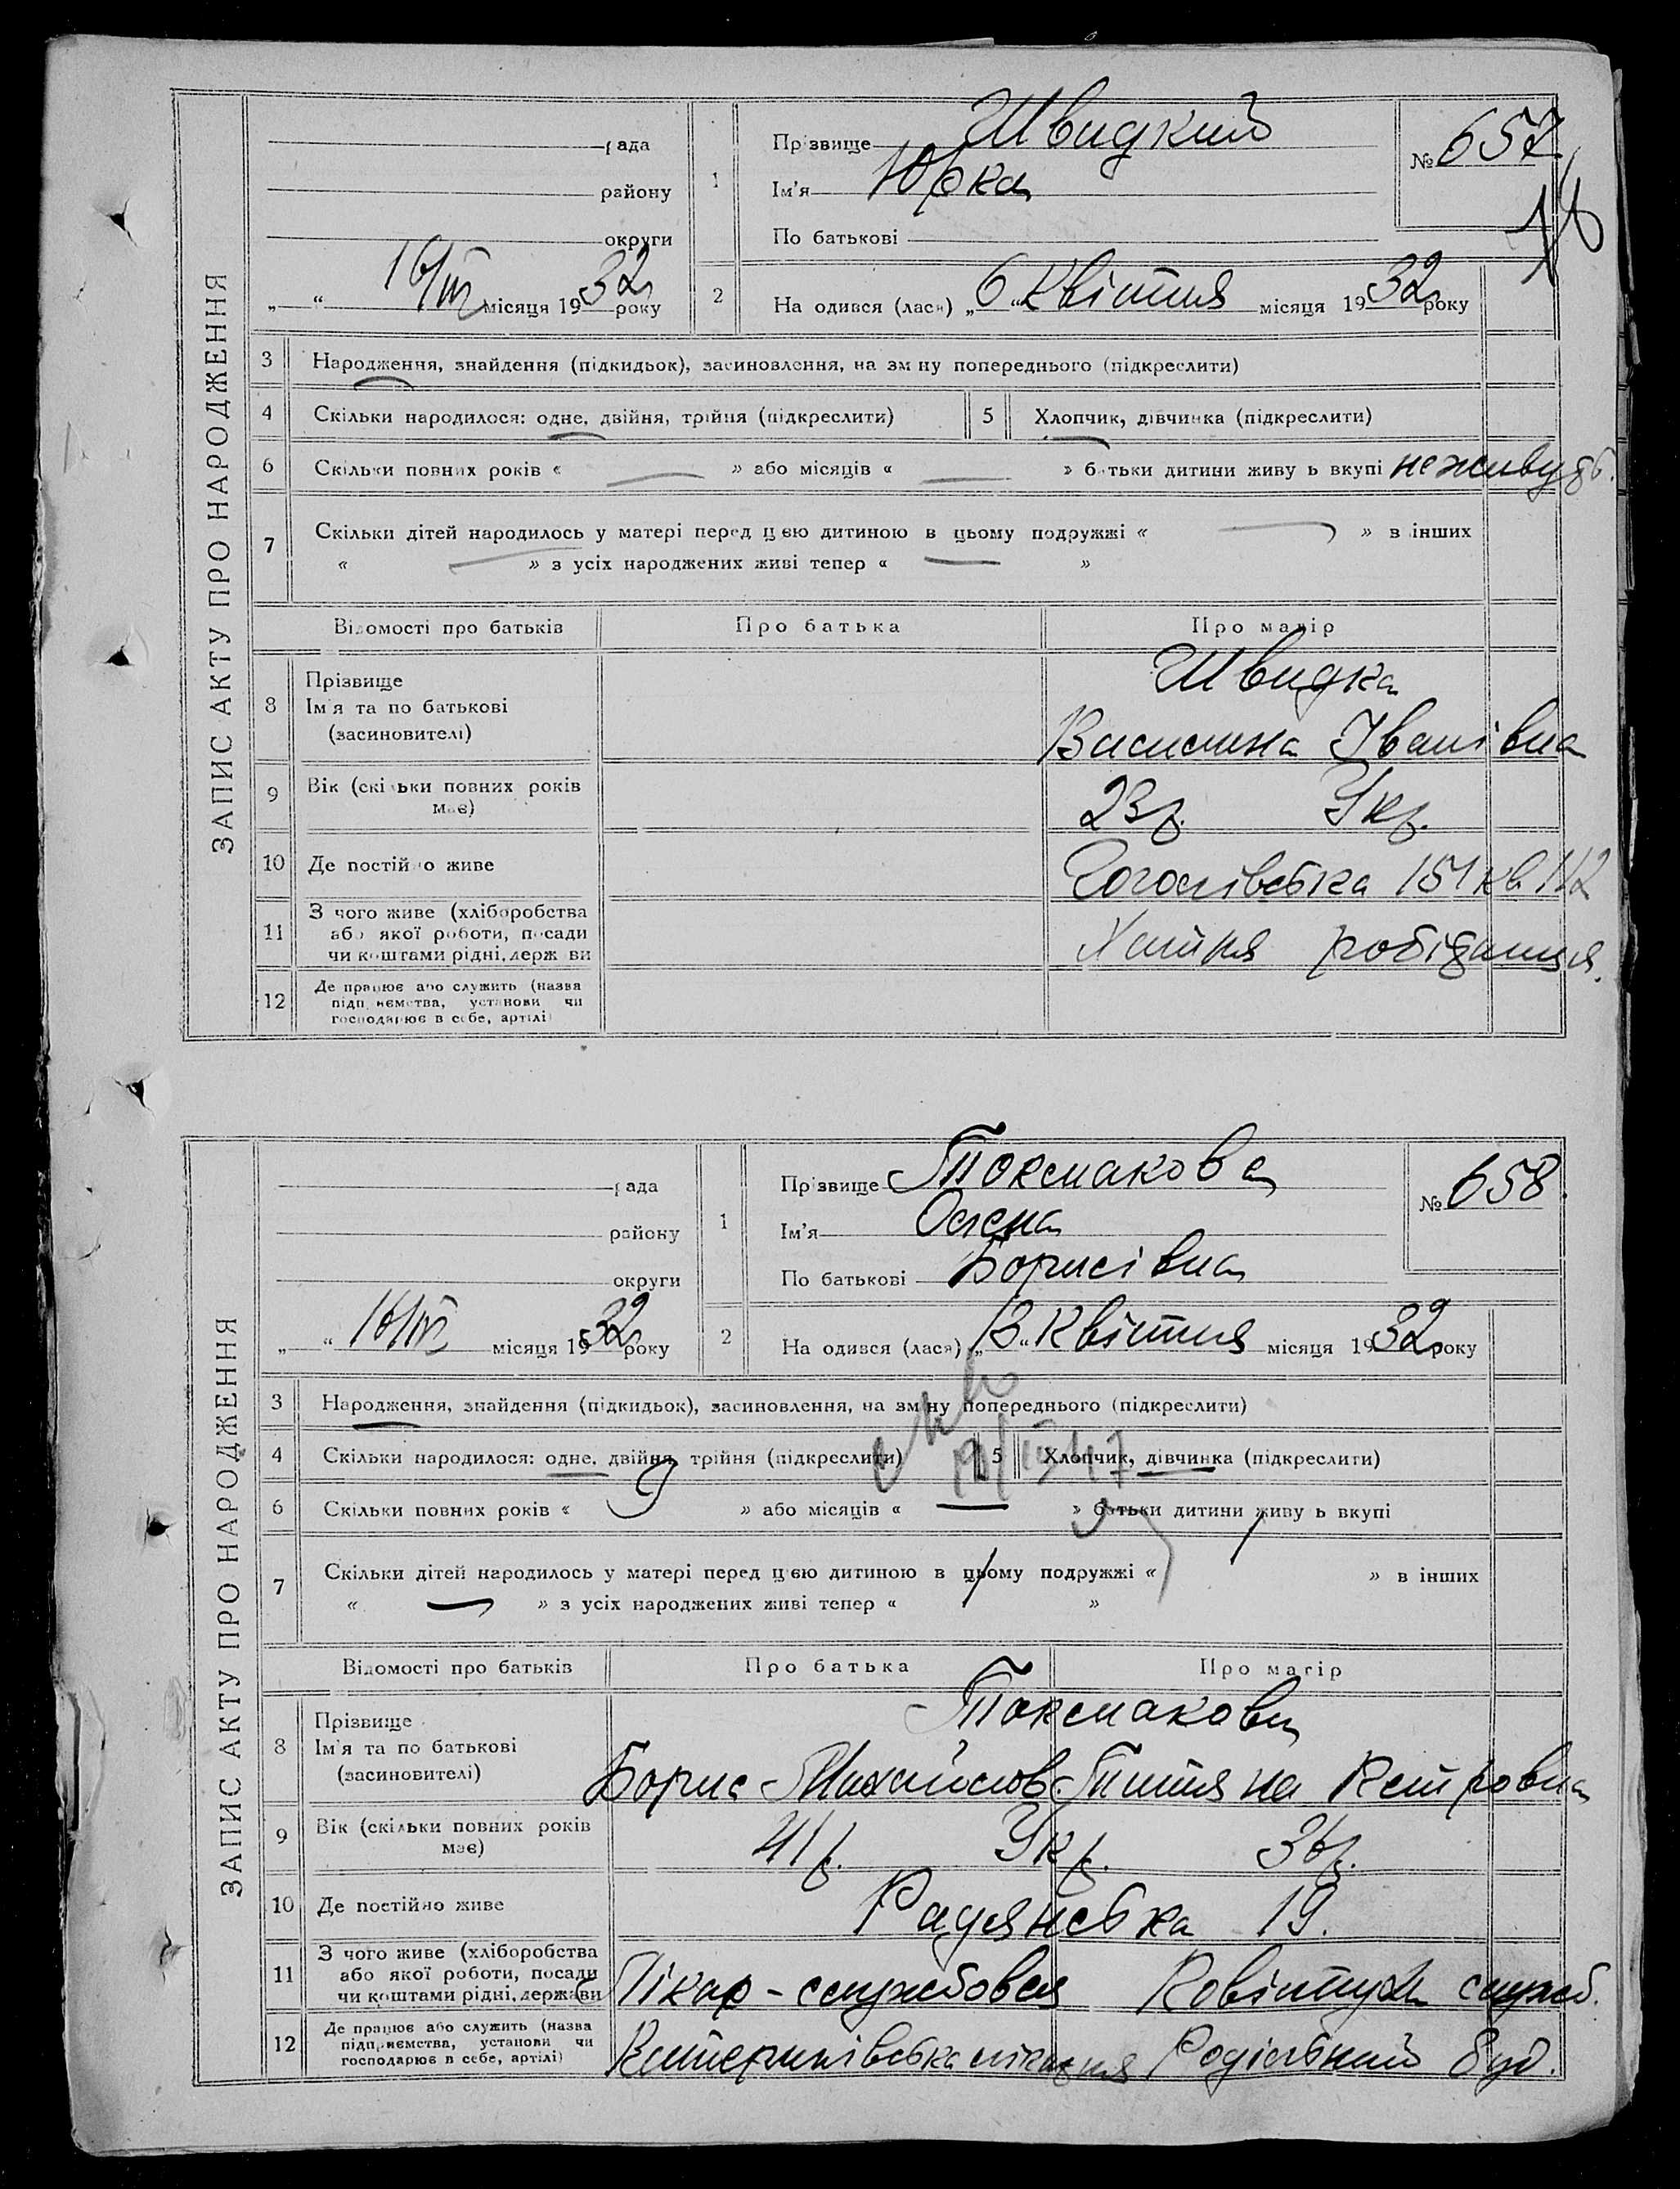 ЗАПИС АКТУ ПРО НАРОДЖЕННЯ
рада
району
округи
„ “ 16/IV місяця 1932 року
1
Прізвище Швидкий
Ім'я Юрка
По батькові
№ 657
2
Народився (лася) „6“ Квітня місяця 1932 року
3 Народження, знайдення (підкидьок), засиновлення, на зміну попереднього (підкреслити)
4 Скільки народилося: одне, двійня, трійня (підкреслити)
5 Хлопчик, дівчинка (підкреслити)
6 Скільки повних років « — » або місяців « — » батьки дитини живуть вкупі не живуть.
7 Скільки дітей народилось у матері перед цією дитиною в цьому подружжі « — » в інших
« — » з усіх народжених живі тепер « — »
Відомості про батьків Про батька Про матір
8 Прізвище
Ім'я та по батькові
(засиновителі)
Швидка
Василина Іванівна
9 Вік (скільки повних років
має)
23 р. Укр.
10 Де постійно живе
Гоголівська 151 кв 112
11 З чого живе (хліборобства
або якої роботи, посади
чи коштами рідні, держави
Хатня робітниця.
12 Де працює або служить (назва
підприємства, установи чи
господарює в себе, артілі)
ЗАПИС АКТУ ПРО НАРОДЖЕННЯ
рада
району
округи
„ “ 16/IV місяця 1932 року
1
Прізвище Токмакова
Ім'я Олена
По батькові Борисівна
№ 658.
2
Народився (лася) „13“ Квітня місяця 1932 року
3 Народження, знайдення (підкидьок), засиновлення, на зміну попереднього (підкреслити)
4 Скільки народилося: одне, двійня, трійня (підкреслити)
5 Хлопчик, дівчинка (підкреслити)
6 Скільки повних років « 9 » або місяців « — » батьки дитини живуть вкупі
7 Скільки дітей народилось у матері перед цією дитиною в цьому подружжі « » в інших
« — » з усіх народжених живі тепер « 1 »
Відомості про батьків Про батька Про матір
8 Прізвище
Ім'я та по батькові
(засиновителі)
Токмакови
Борис Михайлов Титяна Петровна
9 Вік (скільки повних років
має)
41 р. Укр. 36 р.
10 Де постійно живе
Радянська 19.
11 З чого живе (хліборобства
або якої роботи, посади
чи коштами рідні, держави
Лікар - службовец служб.
12 Де працює або служить (назва
підприємства, установи чи
господарює в себе, артілі)
лікарня Родільний буд.